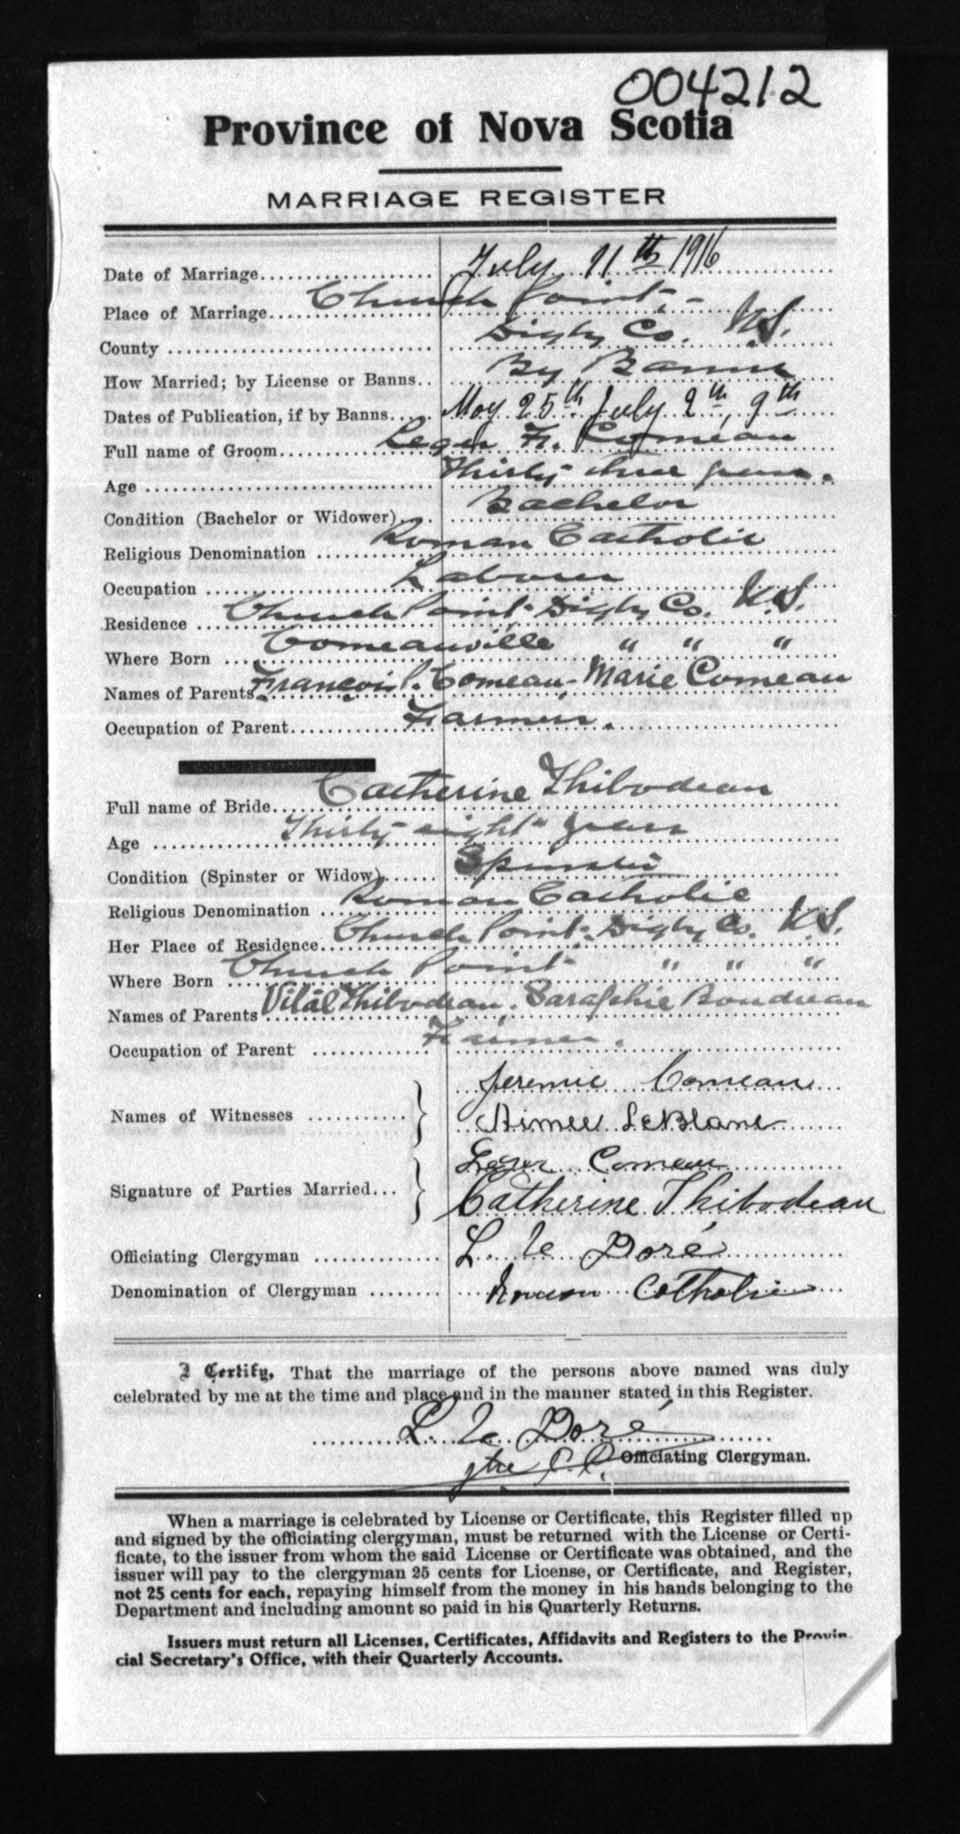 004212
Province of Nova Scotia
MARRIAGE REGISTER
Date of Marriage July 11th 1916
Place of Marriage Church Point,
County Digby Co. N.S.
How Married; by License or Banns By Banns
Dates of Publication, if by Banns May 25th July 2th, 9th
Full name of Groom Leger Comeau
Age Thirty three years.
Condition (Bachelor or Widower) Bachelor
Religious Denomination Roman Catholic
Occupation Laborer
Residence Church Point Digby Co. N.S.
Where Born Comeauville " " "
Names of Parents François P. Comeau, Marie Comeau
Occupation of Parent Farmer.
Full name of Bride Catherine Thibodeau
Age Thirty eight years
Condition (Spinster or Widow) Spinster
Religious Denomination Roman Catholic
Her Place of Residence Church Point Digby Co. N.S.
Where Born Church Point " " "
Names of Parents Vital Thibodeau, Saraphie Boudreau
Occupation of Parent Farmer.
Names of Witnesses Jeremie Comeau
Aimee LeBlanc
Signature of Parties Married Leger Comeau
Catherine Thibodeau
Officiating Clergyman L. Le Doré
Denomination of Clergyman Roman Catholic
I Certify, That the marriage of the persons above named was duly
celebrated by me at the time and place and in the manner stated in this Register.
L. Le Doré
Officiating Clergyman.
When a marriage is celebrated by License or Certificate, this Register filled up
and signed by the officiating clergyman, must be returned with the License or Certi-
ficate, to the issuer from whom the said License or Certificate was obtained, and the
issuer will pay to the clergyman 25 cents for License, or Certificate, and Register,
not 25 cents for each, repaying himself from the money in his hands belonging to the
Department and including amount so paid in his Quarterly Returns.
Issuers must return all Licenses, Certificates, Affidavits and Registers to the Provin-
cial Secretary's Office, with their Quarterly Accounts.